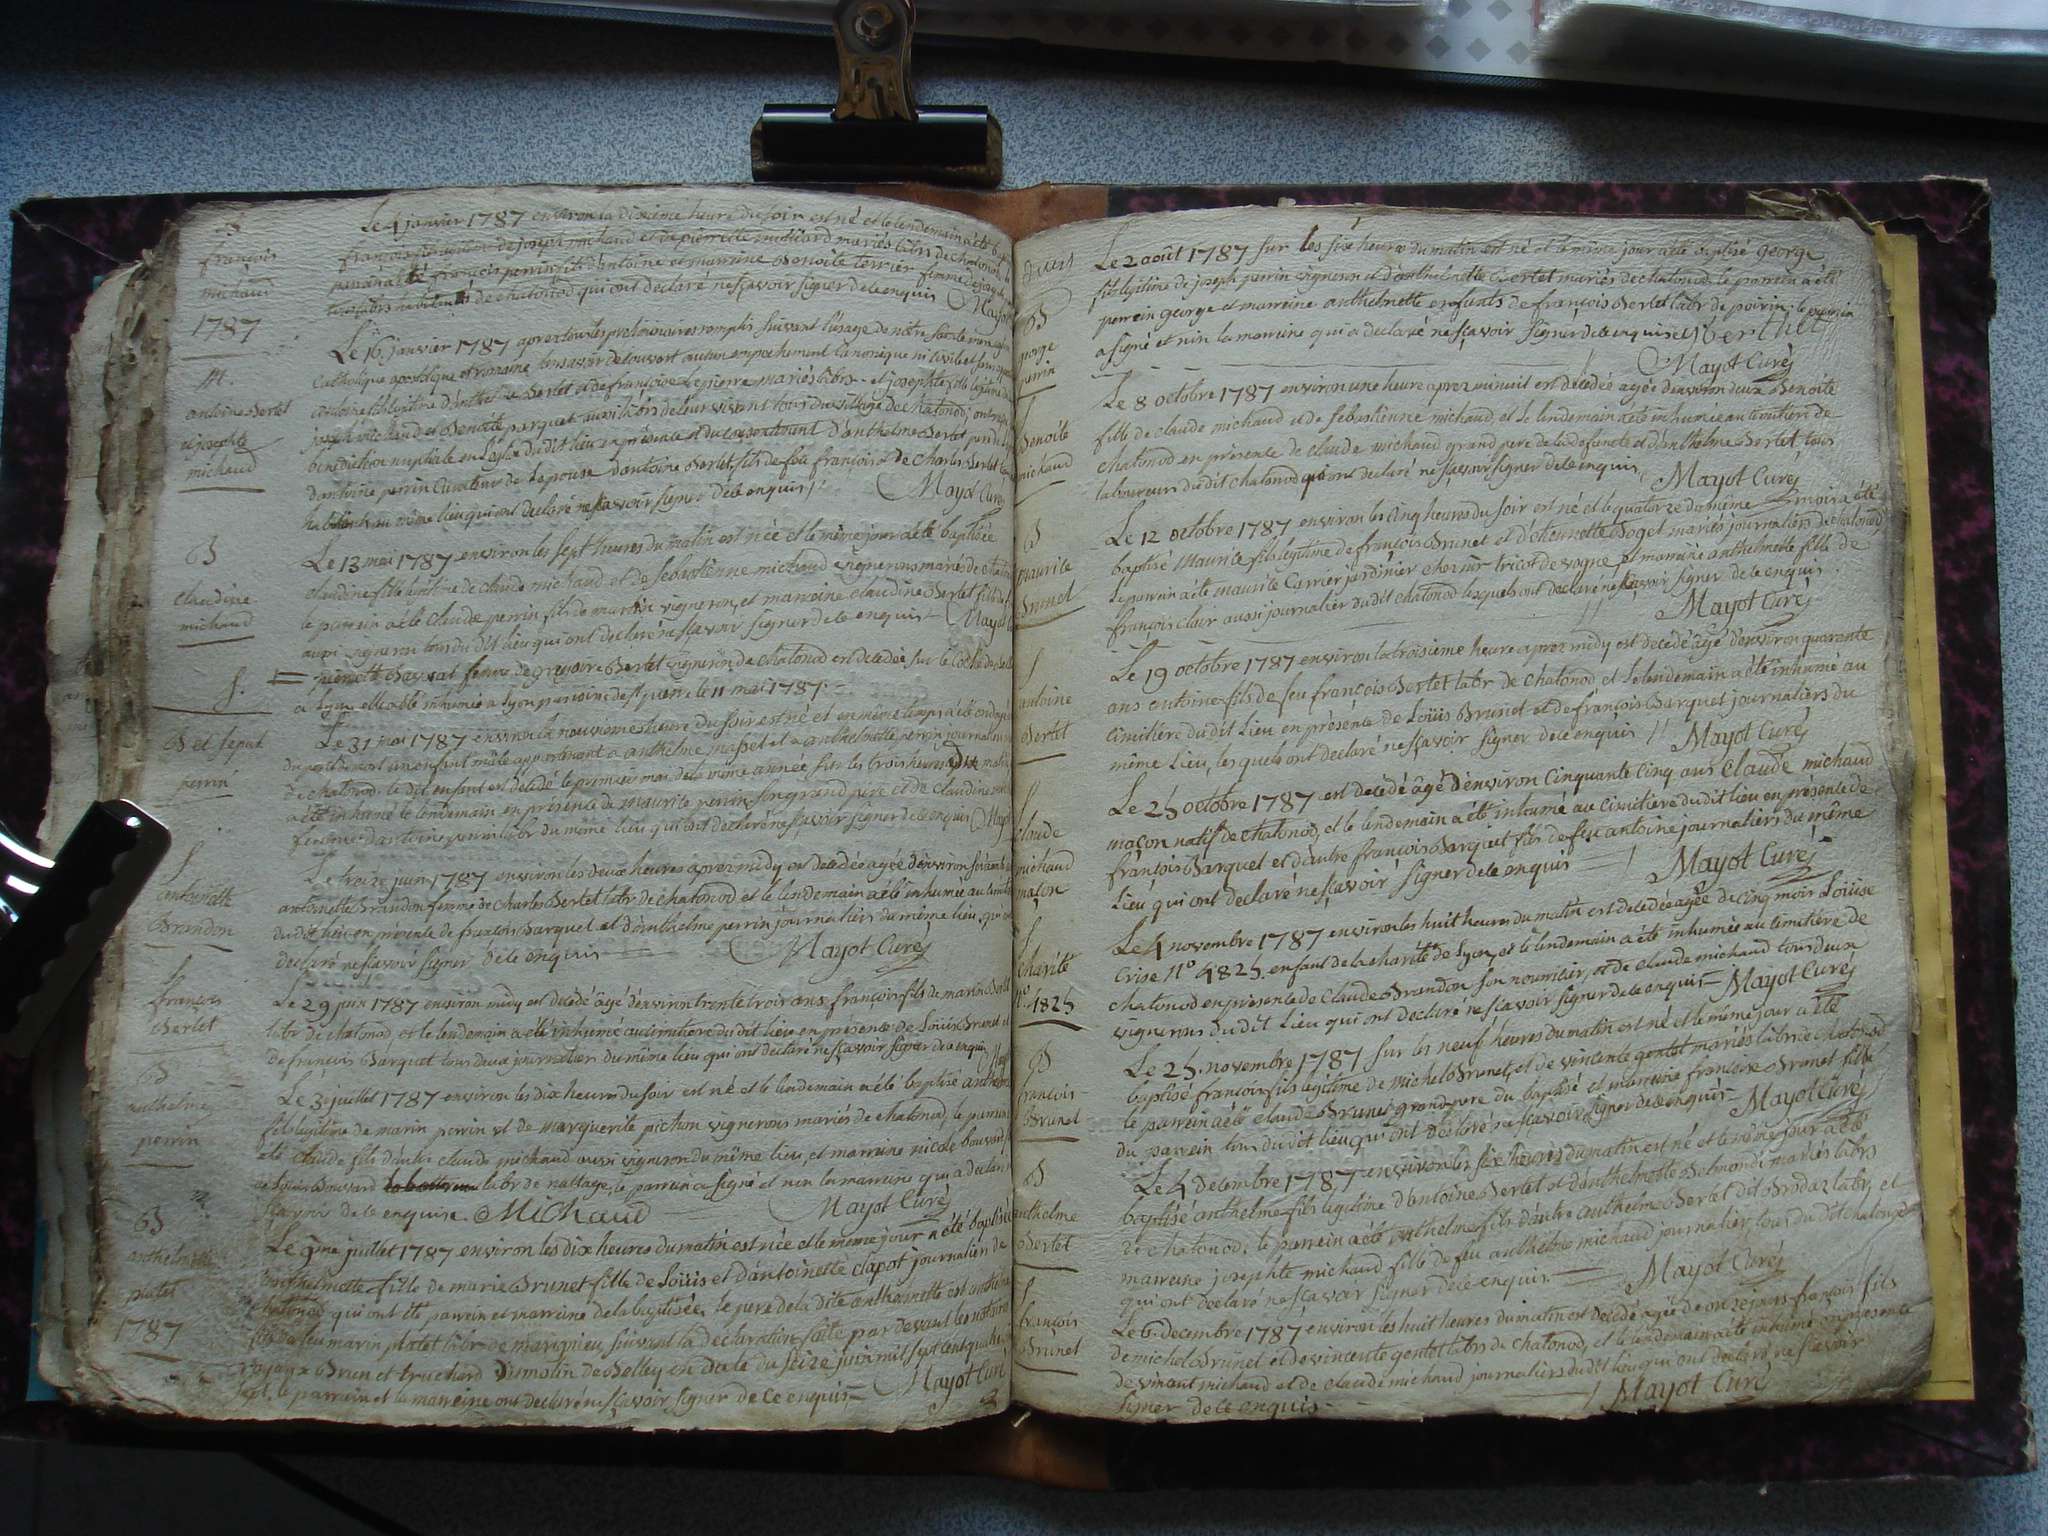 B
françois
michaud
1787
Le 4 janvier 1787 environ la dixieme heure du soir est né et le lendemain a été
françois fils légitime de joseph michaud et de pierrette mariés labrs de chatonod
parrain a été françois perrin fils d'antoine et marreine Benoite terrier femme de joseph
labrs habitants de chatonod qui ont declaré ne sçavoir signer de ce enquis Mayot
M.
antoine Bertet
et josephte
michaud
Le 16 janvier 1787 aprez tous les preliminaires remplis suivant l'usage de nôtre ste mere eglise
Catholique apostolique et romaine sans avoir decouvert aucun empechement canonique ni civil et sans
antoine fils legitime d'anthelme Bertet et de françoise Lepierre mariés labrs et josephte fille legitime de
joseph michaud et Benoite parquet aussi labrs de leur vivant tous du village de chatonod, ont reçu
benediction nuptiale en L'eglise du dit lieu en présence et du consentement d'anthelme Bertet pere
d'antoine perrin Curateur de L'epouse d'antoine Bertet fils de feu françois et de Charles Bertet
habitants du même lieu qui ont declaré ne sçavoir signer de ce enquis Mayot Curé
B
claudine
michaud
Le 13 mai 1787 environ les sept heures du matin est née et le même jour a été baptisée
claudine fille legitime de claude michaud et de sebastienne michaud vignerons mariés de chatonod
le parrein a été Claude perrin fils de martin vigneron, et marreine claudine Bertet fille de
aussi vigneron tous du dit lieu qui ont declaré ne sçavoir signer de ce enquis Mayot
S.
pierrette Bavvat femme de gregoire Bertet vigneron de chatonod est decedée sur le
a Lyon elle a été inhumée a Lyon paroisse de st pierre le 11 mai 1787.
B et sepult
perrin
Le 31 mai 1787 environ la neuvieme heure du soir est né et en même temps a été ondoyé
un enfant mâle appartenant a anthelme masset et a anthelmette perrin journaliers
de chatonod. le dit enfant est decedé le premier de la même année sur les trois heures du matin,
a été inhumé le lendemain en présence de maurice perrin son grand pere et de claudine
femme d'antoine perrin labr du même lieu qui ont declaré ne sçavoir signer de ce enquis Mayot
S
antoinette
Brandon
Le treize juin 1787 environ les deux heures aprez midy est decedée agée d'environ soixante
antoinette Brandon femme de Charles Bertet labr de chatonod et le lendemain a été inhumée au
du dit lieu en présence de françois Barquet et d'anthelme perrin journaliers du même lieu, qui ont
declaré ne sçavoir signer de ce enquis Mayot Curé
S
françois
Bertet
Le 29 juin 1787 environ midy est decédé âgé d'environ trente trois ans françois fils de marin Bertet
labr de chatonod et le lendemain a été inhumé au cimitiere du dit lieu en présence de Loüis Brunet et
de françois Barquet tous deux journaliers du même lieu qui ont declaré ne sçavoir signer de ce enquis
B
anthelme
perrin
Le 3e juillet 1787 environ les dix heures du soir est né et le lendemain a été baptisé anthelme
fils legitime de marin perrin et de marguerite picton vignerons mariés de chatonod, le parrein
été claude fils d'autre claude michaud aussi vigneron du même lieu, et marreine nicole bouvard
de Loüis Bouvard labr de nattage, le parrein a signé et non la marreine qui a declaré
sçavoir de ce enquise Michaud Mayot Curé
B
anthelmette
platet
1787
Le 9me juillet 1787 environ les dix heures du matin est née et le meme jour a été baptisée
anthelmette fille de marie Brunet fille de Loüis et d'antoinette clapot journalier de
chatonod qui ont été parrein et marreine de la baptisée. le pere de la dite anthelmette est anthelme
fils de feu marin platet labr de marignieu, suivant la declaration faite par devant les notaires
royaux Brun et truchard Dumolin de Belley en date du seize juin mil sept cent quatre
sept. le parrein et la marreine ont declaré ne sçavoir signer de ce enquis Mayot Curé
B
george
perrin
Le 2 août 1787 sur les six heures du matin est né et le même jour a été baptisé george
fils legitime de joseph perrin vigneron et d'anthelmette Bertet mariés de chatonod, le parrein a été
perrein george et marreine anthelmette enfants de françois Bertet labr de poirin; le parrein
a signé et non la marreine qui a declaré ne sçavoir signer de ce enquise Berthet
Mayot Curé
S
Benoite
michaud
Le 8 octobre 1787 environ une heure aprez minuit est decédée agée d'environ deux Benoite
fille de claude michaud et de sebastienne michaud, et le lendemain a été inhumée au cimitiere de
chatonod en présence de claude michaud grand pere de la defuncte et d'anthelme Bertet, tous
laboureurs du dit chatonod qui ont declaré ne sçavoir signer de ce enquis Mayot Curé
B
maurice
Brunet
Le 12 octobre 1787 environ les cinq heures du soir est né et le quatorze du même mois a été
baptisé Maurice fils legitime de françois Brunet et d'etiennette Goget mariés journaliers de chatonod,
Le parrein a été maurice Carrier jardinier chez mr tricot de vogne et marreine anthelmette fille de
françois clair aussi journalier du dit chatonod lesquels ont declaré ne sçavoir signer de ce enquis.
Mayot Curé
S
antoine
Bertet
Le 19 octobre 1787 environ la troisieme heure aprez midy est decédé âgé d'environ quarante
ans antoine fils de feu françois Bertet labr de chatonod et le lendemain a été inhumé au
Cimitiere du dit Lieu en présence de Loüis Brunet et de françois Barquet journaliers du
même Lieu, lesquels ont declaré ne sçavoir signer de ce enquis Mayot Curé
S
claude
michaud
maçon
Le 25 octobre 1787 est decédé âgé d'environ Cinquante Cinq ans Claude michaud
maçon natif de chatonod, et le lendemain a été inhumé au Cimitiere du dit lieu en présence de
françois Barquet et d'autre françois Barquet fils de feu antoine journaliers du même
Lieu qui ont declaré ne sçavoir signer de ce enquis Mayot Curé
S
charité
No
4825
Le 4 novembre 1787 environ les huit heures du matin est decédée agée de cinq mois Loüise
Crise No 4825 enfant de la charité de Lyon, et le lendemain a été inhumée au cimitiere de
chatonod en présence de Claude Brandon son nourricier, et de claude michaud tous deux
vignerons du dit Lieu qui ont declaré ne sçavoir signer de ce enquis Mayot Curé
B
françois
Brunet
Le 25 novembre 1787 sur les neuf heures du matin est né et le même jour a été
baptisé françois fils legitime de michel Brunet, et de vincente gentet mariés labrs de chatonod
le parrein a été claude Brunet grand pere du baptisé et marreine françoise Brunet fille
du parrein tous du dit lieu qui ont declaré ne sçavoir signer de ce enquis Mayot Curé
B
anthelme
Bertet
Le 4 decembre 1787 environ les six heures du matin est né et le même jour a été
baptisé anthelme fils legitime d'antoine Bertet et d'anthelmette Belmondi mariés labrs
de chatonod; le parrein a été anthelme fils d'autre anthelme Bertet dit Brodaz labr, et
marreine josephte michaud fille de feu anthelme michaud journalier, tous du dit chatonod
qui ont declaré ne sçavoir signer de ce enquis Mayot Curé
S
françois
Brunet
Le 6 decembre 1787 environ les huit heures du matin est decédé agé de onze jours françois fils
de michel Brunet et de vincente gentet labrs de chatonod, et le lendemain a été inhumé en présence
de vincent michaud et de claude michaud journaliers du dit lieu qui ont declaré ne sçavoir
signer de ce enquis Mayot Curé